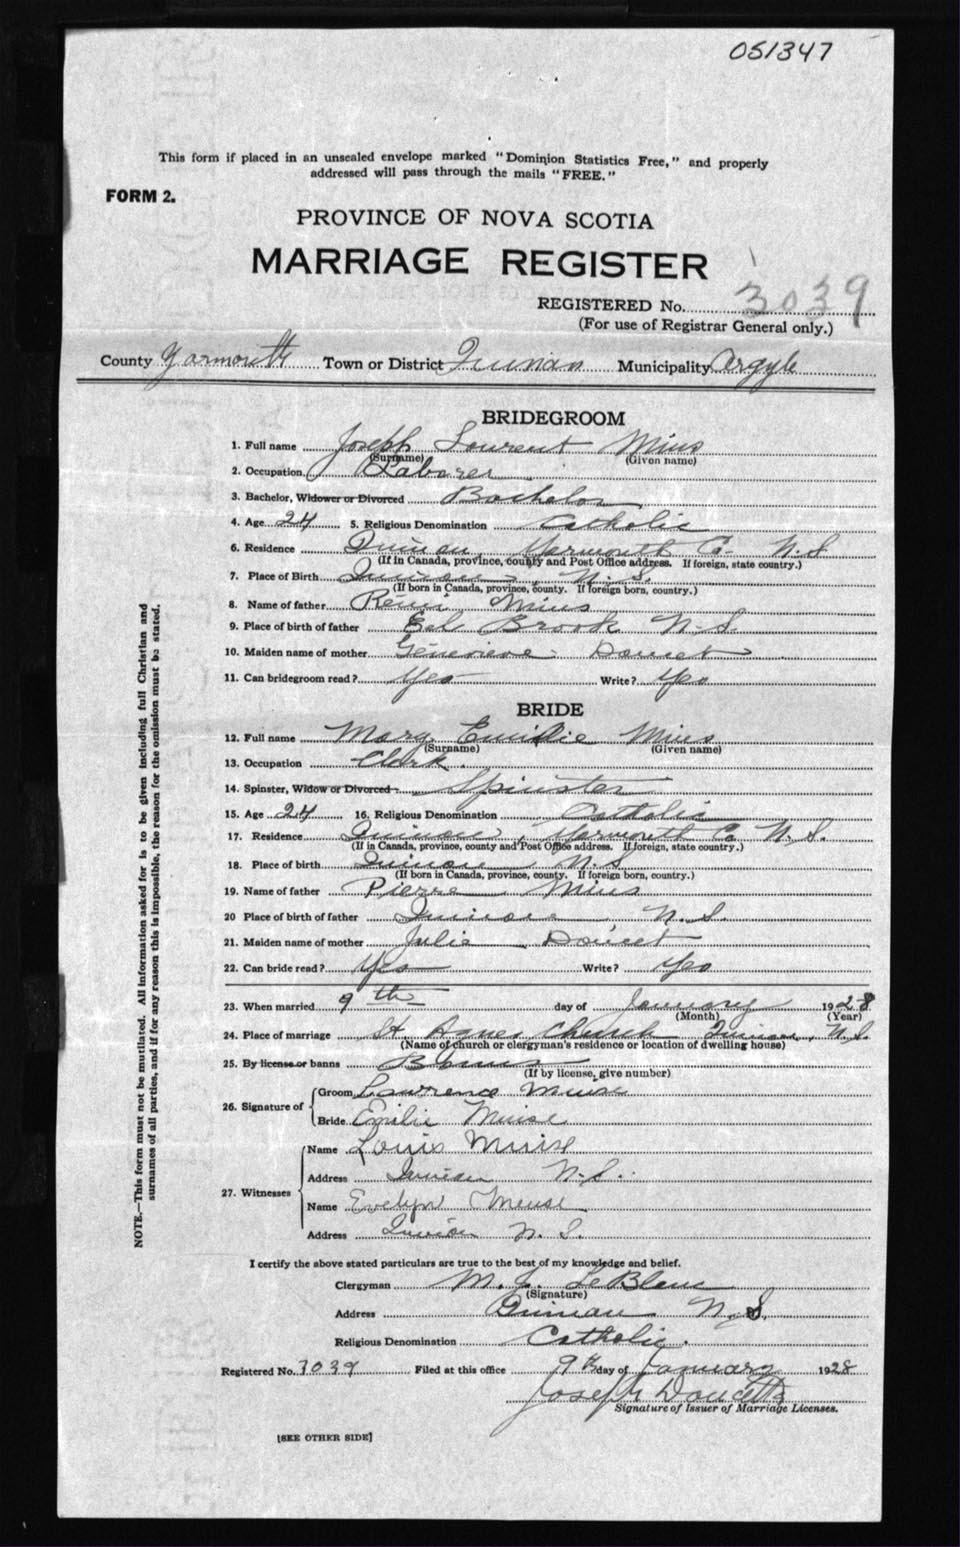 051347
This form if placed in an unsealed envelope marked "Dominion Statistics Free," and properly
addressed will pass through the mails "FREE."
FORM 2.
PROVINCE OF NOVA SCOTIA
MARRIAGE REGISTER
REGISTERED No. 3039
(For use of Registrar General only.)
County Yarmouth Town or District Quinan Municipality Argyle
BRIDEGROOM
1. Full name Joseph Laurent Mius
(Surname) (Given name)
2. Occupation Laborer
3. Bachelor, Widower or Divorced Bachelor
4. Age 24 5. Religious Denomination Catholic
6. Residence Quinan, Yarmouth Co. N.S
(If in Canada, province, county and Post Office address. If foreign, state country.)
7. Place of Birth Quinan, N.S.
(If born in Canada, province, county. If foreign born, country.)
8. Name of father Remi Mius
9. Place of birth of father Eel Brook N.S.
10. Maiden name of mother Genevieve Doucet
11. Can bridegroom read? Yes Write? Yes
BRIDE
12. Full name Mary Emilie Mius
(Surname) (Given name)
13. Occupation Clerk.
14. Spinster, Widow or Divorced Spinster
15. Age 24 16. Religious Denomination Catholic
17. Residence Quinan, Yarmouth Co N.S.
(If in Canada, province, county and Post Office address. If foreign, state country.)
18. Place of birth Quinan N.S
(If born in Canada, province, county. If foreign born, country.)
19. Name of father Pierre Mius
20 Place of birth of father Quinan N.S
21. Maiden name of mother Julie Doucet
22. Can bride read? Yes Write? Yes
23. When married 9th day of January 1928
(Month) (Year)
24. Place of marriage St Agnes Church Quinan, N.S.
(Name of church or clergyman's residence or location of dwelling house)
25. By license or banns Banns
(If by license, give number)
26. Signature of
Groom Lawrence Muise
Bride Emilie Muise
27. Witnesses
Name Louis Muise
Address Quinan N.S.
Name Evelyn Meuse
Address Quinan N.S.
I certify the above stated particulars are true to the best of my knowledge and belief.
Clergyman M. J. LeBlanc
(Signature)
Address Quinan N.S.
Religious Denomination Catholic.
Registered No. 3039 Filed at this office 9th day of January 1928
Joseph Doucette
Signature of Issuer of Marriage Licenses.
[SEE OTHER SIDE]
NOTE.—This form must not be mutilated. All information asked for is to be given including full Christian and
surnames of all parties, and if for any reason this is impossible, the reason for the omission must be stated.